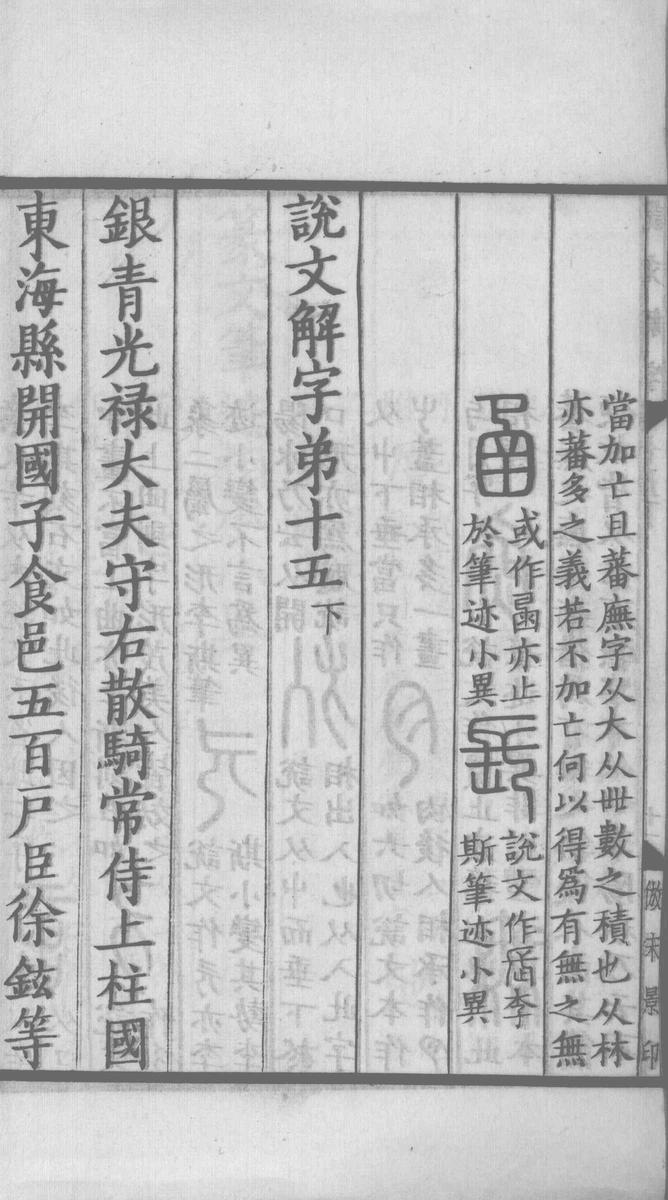 當加亡且蕃廡字从大从𠦜數之積也从林
亦蕃多之義若不加亡何以得爲有無之無
或作𠷎亦止
於筆迹小異
說文作𠚖李
斯筆迹小異
說文解字弟十五下
銀青光禄大夫守右散騎常侍上柱國
東海縣開國子食邑五百戸臣徐鉉等
倣宋景印